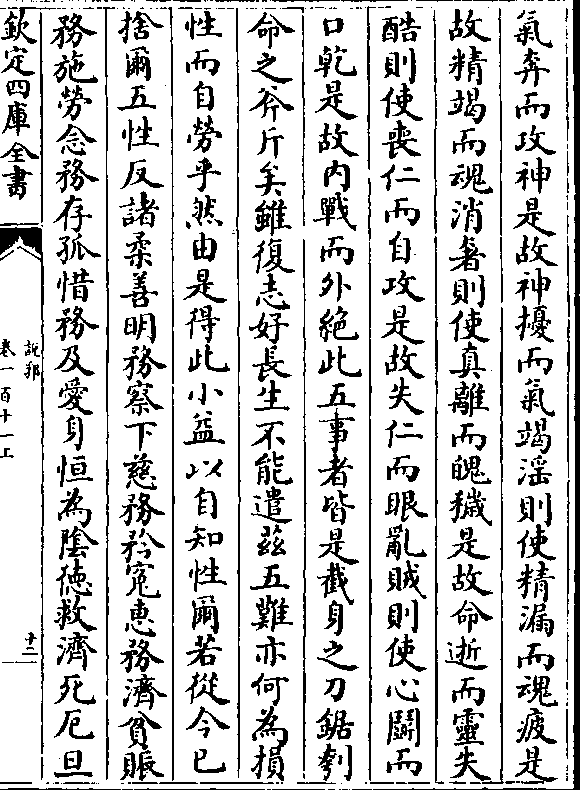 氣奔而攻神是故神擾而氣竭淫則使精漏而魂疲是
故精竭而魂消奢則使真離而魄穢是故命逝而靈失
酷則使喪仁而自攻是故失仁而眼亂賊則使心鬭而
口乾是故内戰而外絶此五事者皆是截身之刀鋸刳
命之斧斤矣雖復志好長生不能遣兹五難亦何為損
性而自勞乎然由是得此小益以自知性爾若從今已
捨爾五性反諸柔善明務察下慈務矜寃惠務濟貧賑
務施勞念務存孤惜務及愛身恒為陰德救濟死厄旦
欽定四庫全書
説郛
卷一百十一上
十二